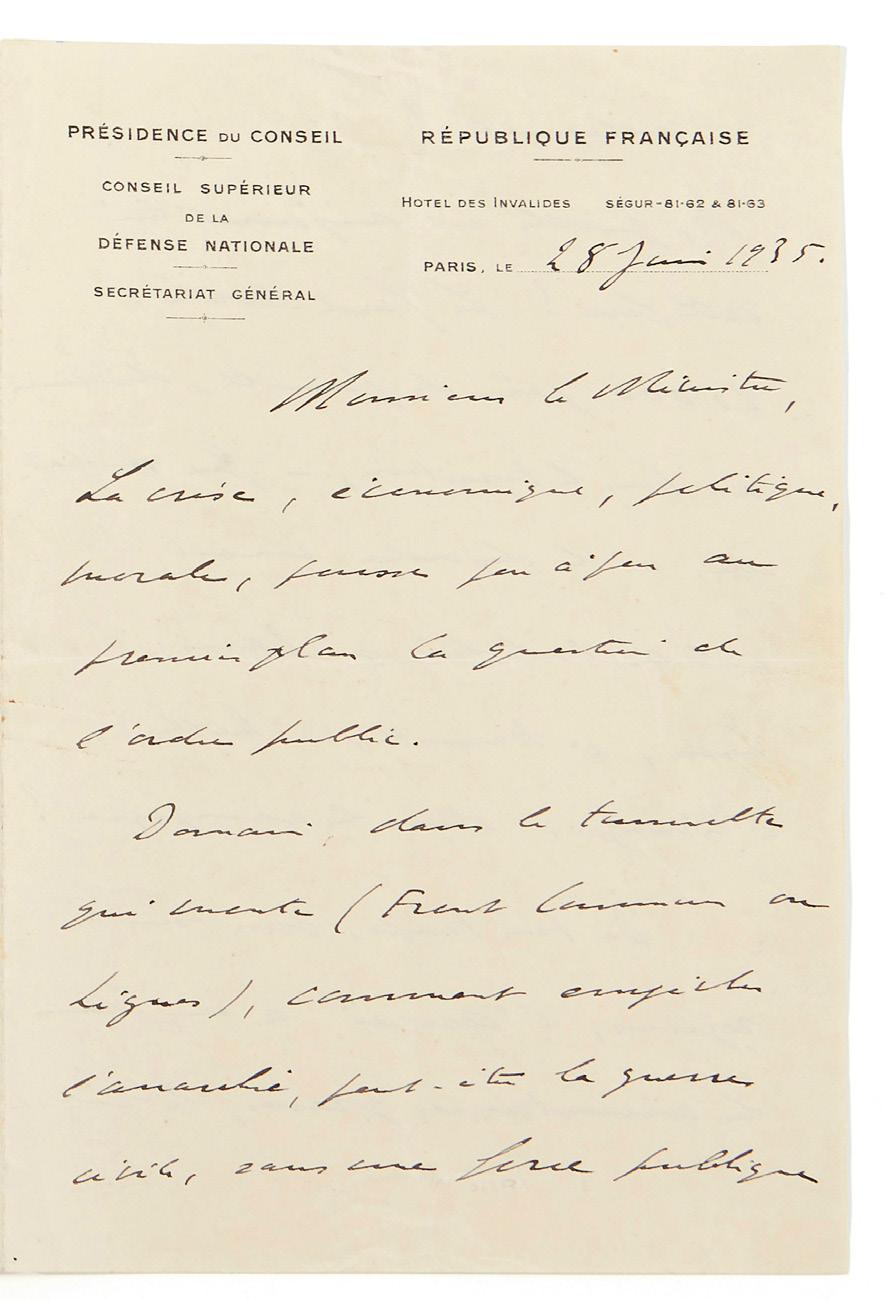 PRÉSIDENCE DU CONSEIL
CONSEIL SUPÉRIEUR
DE LA
DÉFENSE NATIONALE
SECRÉTARIAT GÉNÉRAL
RÉPUBLIQUE FRANÇAISE
HOTEL DES INVALIDES SÉGUR-81-62 & 81-63
PARIS, LE 28 Juin 1935.
Monsieur le Ministre,
La crise, économique, politique,
morale, pousse peu à peu au
premier plan la question de
l'ordre public.
Demain, dans le tumulte
qui monte (Front Commun ou
Ligues), comment empêcher
l'anarchie, peut-être la guerre
civile, sans une force publique